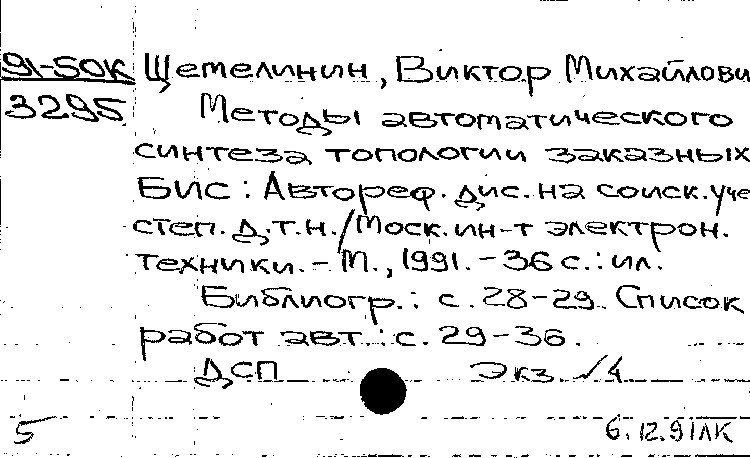 91-50К Щетелинин, Виктор Михайлови
3295 Методы автоматического
синтеза топологии заказных
БИС : Автореф. дис. на соиск. уче
степ. д.т.н. / Моск. ин-т электрон.
техники. - М., 1991. - 36 с. : ил.
Библиогр.: с. 28-29. Список
работ авт.: с. 29-36.
ДСП Экз. √4
5 6.12.91ЛК